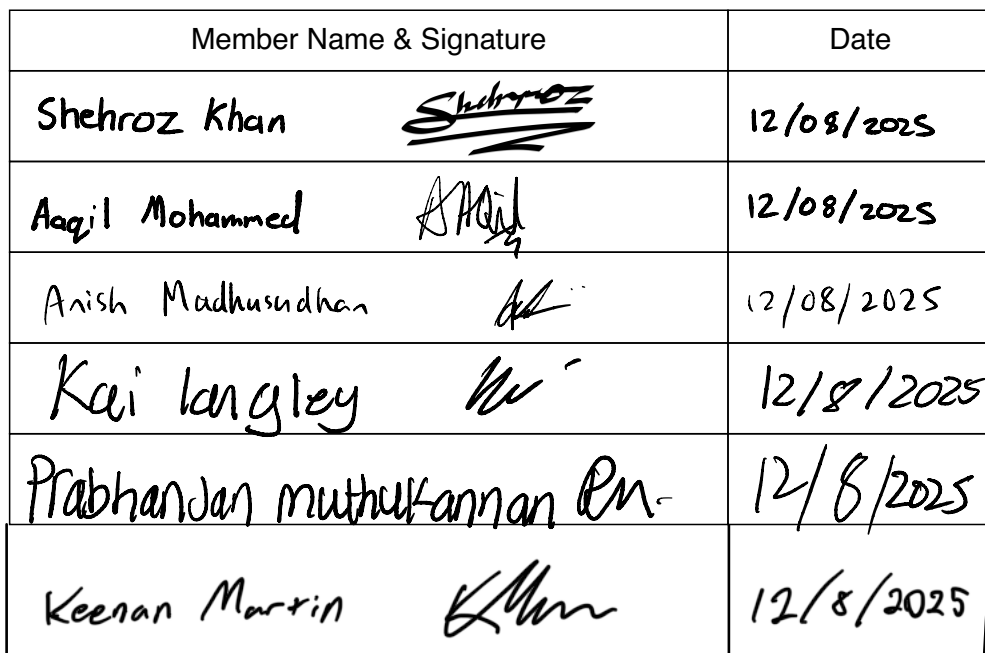 Member Name & Signature Date
Shehroz Khan Shehroz 12/08/2025
Aaqil Mohammed AAQil 12/08/2025
Anish Madhusudhan 12/08/2025
Kai langley 12/8/2025
Prabhanjan muthukannan PM. 12/8/2025
Keenan Martin 12/8/2025